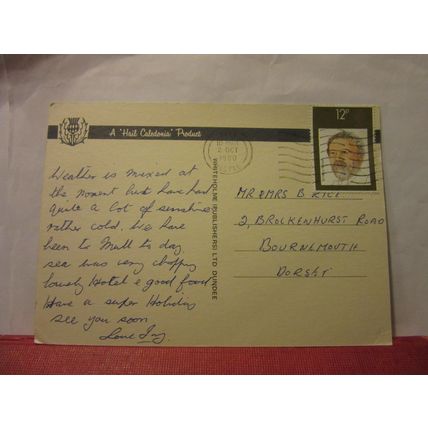 A 'Hail Caledonia' Product
12P
2 OCT
1980
WHITEHOLME (PUBLISHERS) LTD. DUNDEE
Weather is mixed at
the moment but have had
quite a lot of sunshine
rather cold. We have
been to Mull to day
sea was very choppy
lovely Hotel & good food
Have a super Holiday
see you soon
Love
MR & MRS B. RICE
2, BROCKENHURST ROAD
BOURNEMOUTH
DORSET